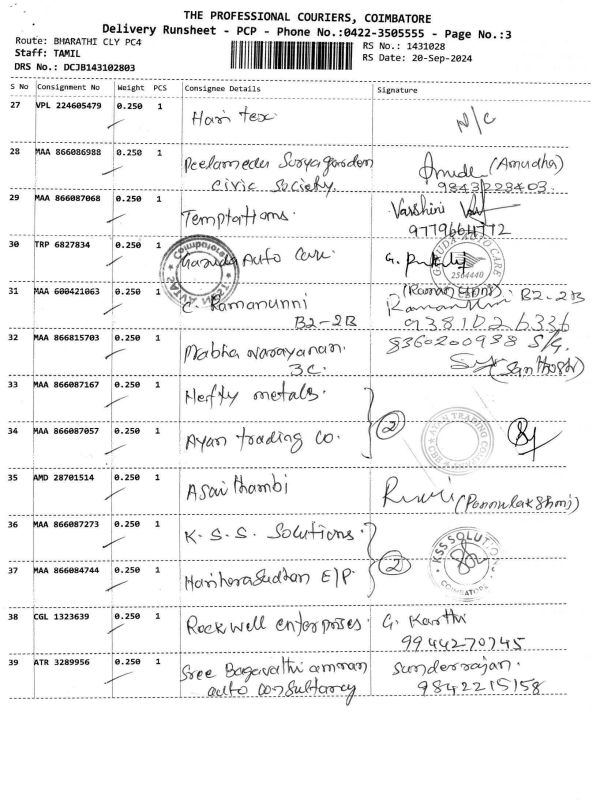 THE PROFESSIONAL COURIERS, COIMBATORE
Delivery Runsheet - PCP - Phone No.:0422-3505555 - Page No.:3
Route: BHARATHI CLY PC4 RS No.: 1431028
Staff: TAMIL RS Date: 20-Sep-2024
DRS No.: DCJB143102803
S No Consignment No Weight PCS Consignee Details Signature
27 VPL 224605479 0.250 1 Hari tex N/C
28 MAA 866086988 0.250 1 Peelamedu Suryagarden (Amudha)
civic society. 9843223403
29 MAA 866087068 0.250 1 Temptations. Varshini
9779664772
30 TRP 6827834 0.250 1 Garuda Auto Care G.
GARUDA AUTO CARE
2564440
31 MAA 600421063 0.250 1 C. Ramanunni B2-2B
B2-2B 9381026336
32 MAA 866815703 0.250 1 Prabha Narayanan. 8360200938 S/G
3C. (Santhosh)
33 MAA 866087167 0.250 1 Hefty metals.
2
34 MAA 866087057 0.250 1 Ayan trading co. AYAN TRADING
35 AMD 28701514 0.250 1 Asai thambi (Ponnulakshmi)
36 MAA 866087273 0.250 1 K.S.S. Solutions. KSS SOLUTIONS
2
COIMBATORE
37 MAA 866084744 0.250 1 Hariharasudhan E/P.
38 CGL 1323639 0.250 1 Rockwell enterprises. G. Karthi
9944270745
39 ATR 3289956 0.250 1 Sree Bagavathi amman Sunderrajan.
auto consultancy 9842215158